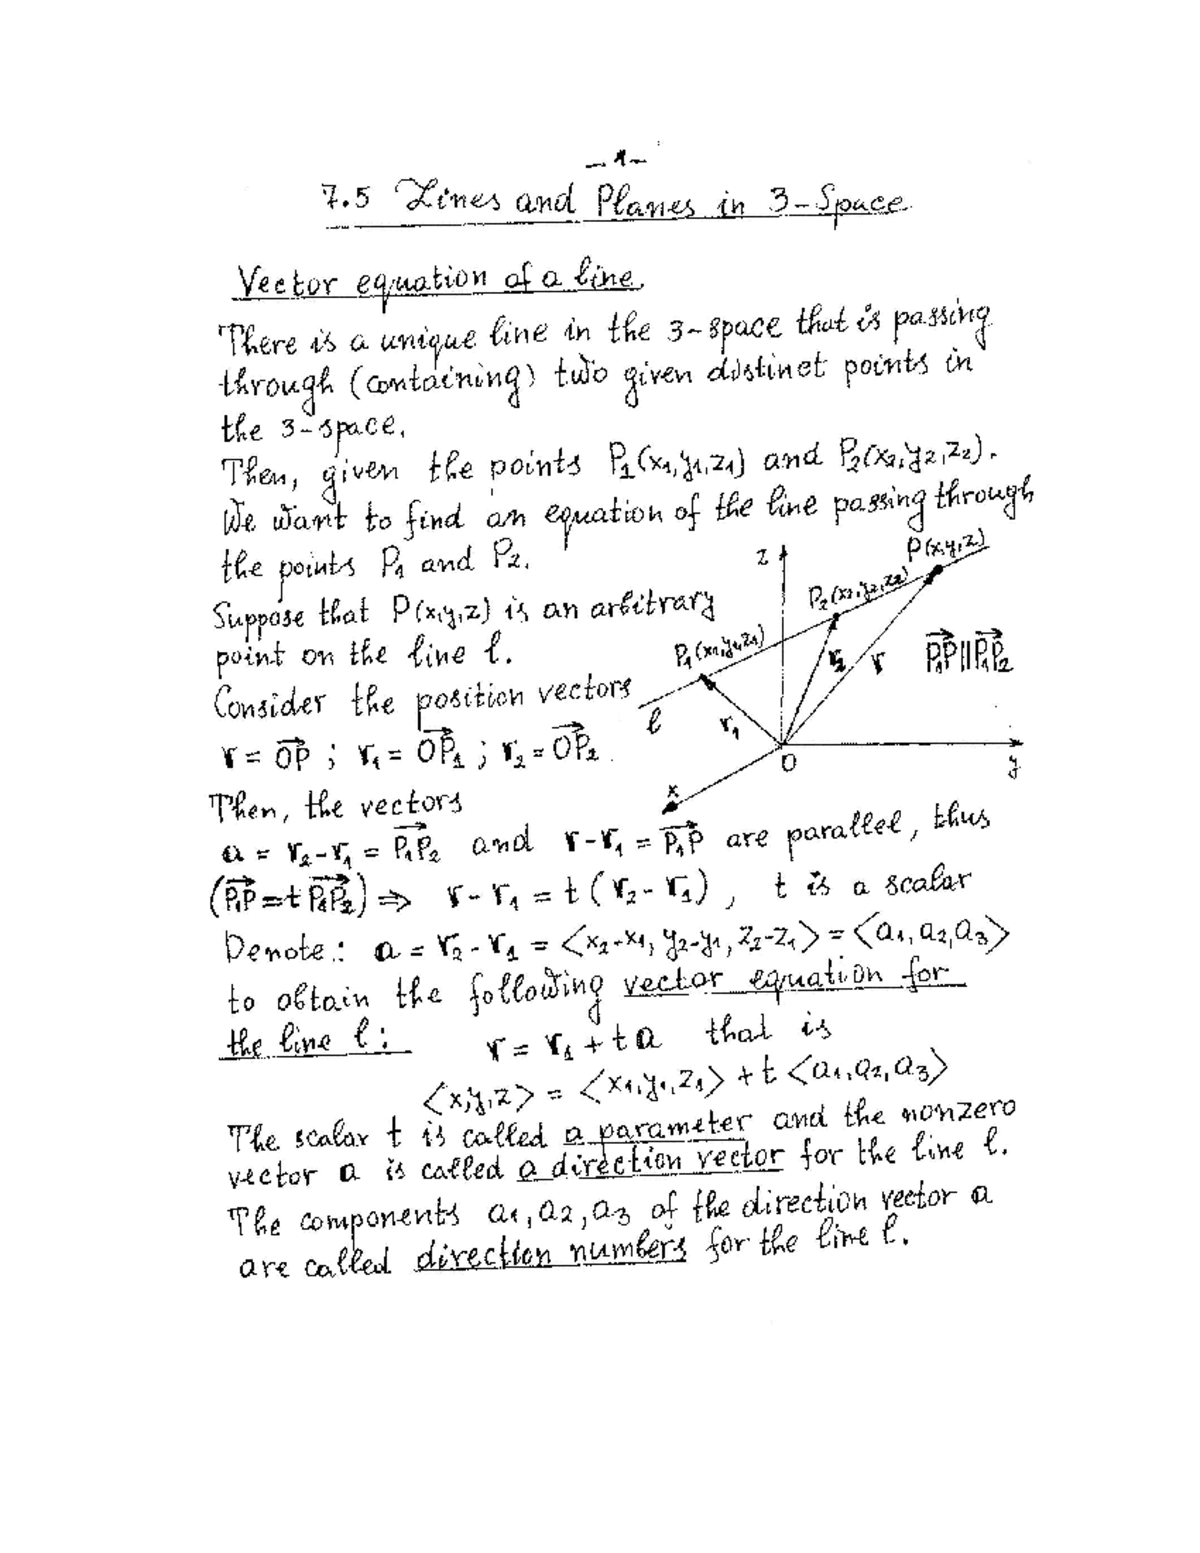 -1-
7.5 Lines and Planes in 3-Space
Vector equation of a line.
There is a unique line in the 3-space that is passing
through (containing) two given distinct points in
the 3-space.
Then, given the points P₁(x₁,y₁,z₁) and P₂(x₂,y₂,z₂).
We want to find an equation of the line passing through
the points P₁ and P₂.
Suppose that P(x,y,z) is an arbitrary
point on the line l.
Consider the position vectors
r = OP⃗ ; r₁ = OP₁⃗ ; r₂ = OP₂⃗.
z
P(x,y,z)
P₂(x₂,y₂,z₂)
P₁(x₁,y₁,z₁)
r₂
r
P₁P⃗ ∥ P₁P₂⃗
l
r₁
O
y
x
Then, the vectors
a = r₂-r₁ = P₁P₂⃗ and r-r₁ = P₁P⃗ are parallel, thus
(P₁P⃗ = t P₁P₂⃗) ⇒ r-r₁ = t(r₂-r₁), t is a scalar
Denote: a = r₂-r₁ = ⟨x₂-x₁, y₂-y₁, z₂-z₁⟩ = ⟨a₁,a₂,a₃⟩
to obtain the following vector equation for
the line l: r = r₁ + t a that is
⟨x,y,z⟩ = ⟨x₁,y₁,z₁⟩ + t ⟨a₁,a₂,a₃⟩
The scalar t is called a parameter and the nonzero
vector a is called a direction vector for the line l.
The components a₁,a₂,a₃ of the direction vector a
are called direction numbers for the line l.